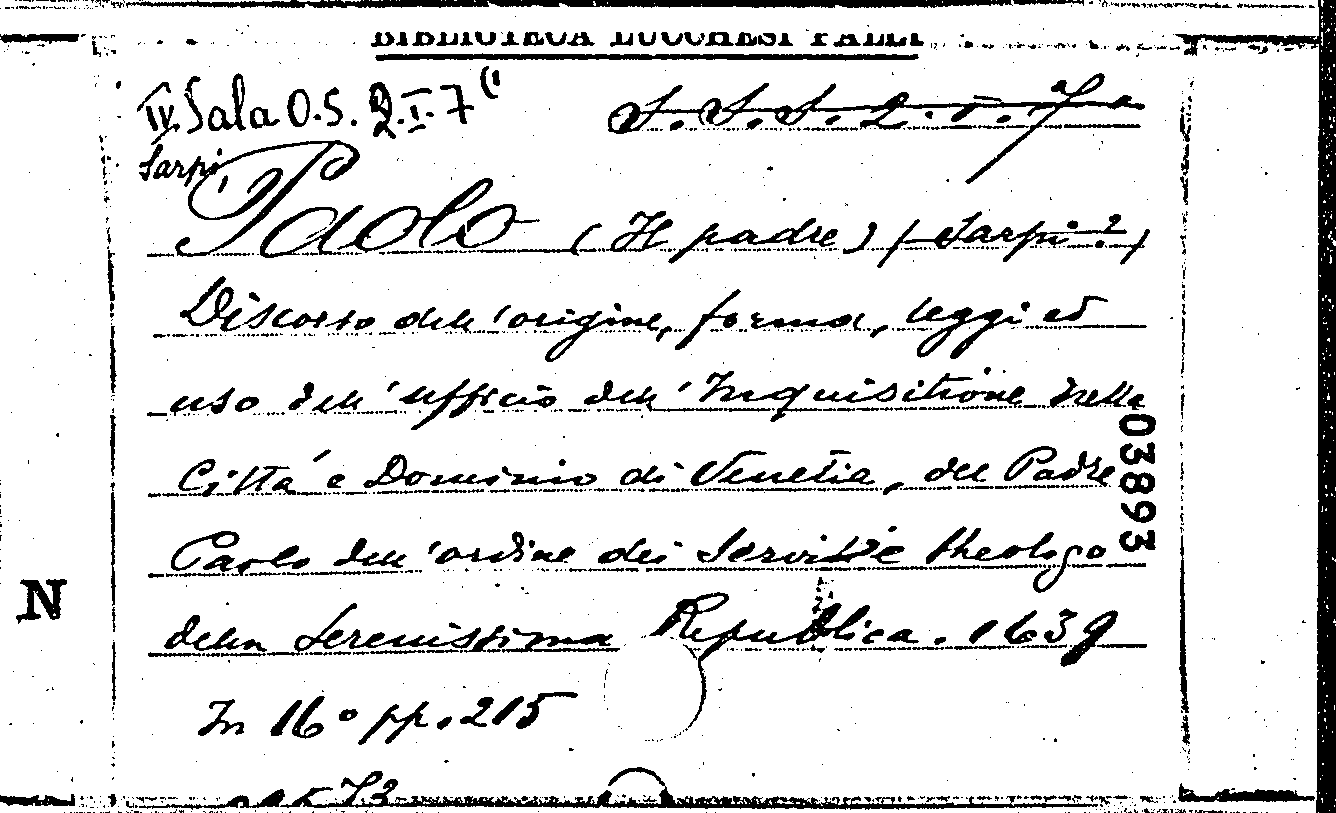 BIBLIOTECA LUCCHESI PALLI
IV. Sala O.S. 2.I.7(1
S.S.S. 2.I.7a
Sarpi
Paolo (Il padre) (Sarpi?)
Discorso dell'origine, forma, leggi ed
uso dell'ufficio dell'Inquisitione nella
Città e Dominio di Venetia, del Padre
Paolo dell'ordine dei Servi theologo
della Serenissima Republica. 1639
In 16° pp. 215
03893
N